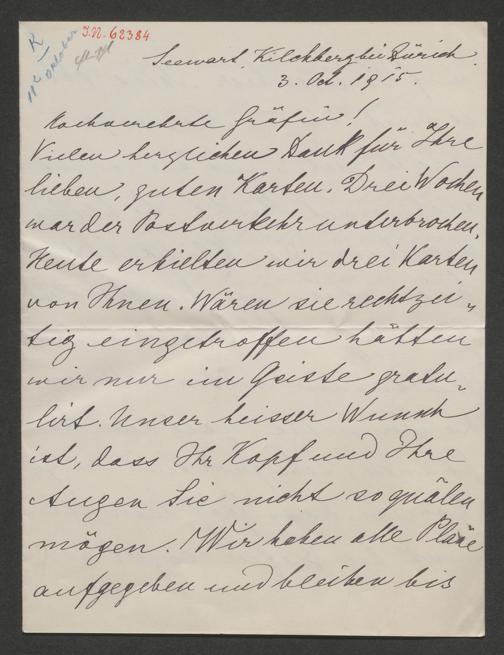 K
I.N. 62384
11t Oktober
Seewart, Kilchberg bei Zürich.
3. Oct. 1915.
Hochverehrte Gräfin!
Vielen herzlichen Dank für Ihre
lieben, guten Karten. Drei Wochen
war der Postverkehr unterbrochen.
Heute erhielten wir drei Karten
von Ihnen. Wären sie rechtzei„
tig eingetroffen hätten
wir nur im Geiste gratu„
lirt. Unser heisser Wunsch
ist, dass Ihr Kopf und Ihre
Augen Sie nicht so quälen
mögen. Wir haben alle Pläne
aufgegeben und bleiben bis